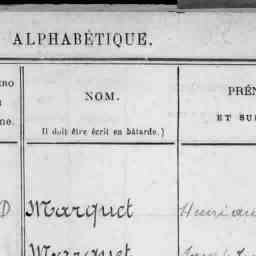 ALPHABÉTIQUE.
NOM.
(Il doit être écrit en bâtarde.)
PRÉN
ET SUR
Marquet
Marquet